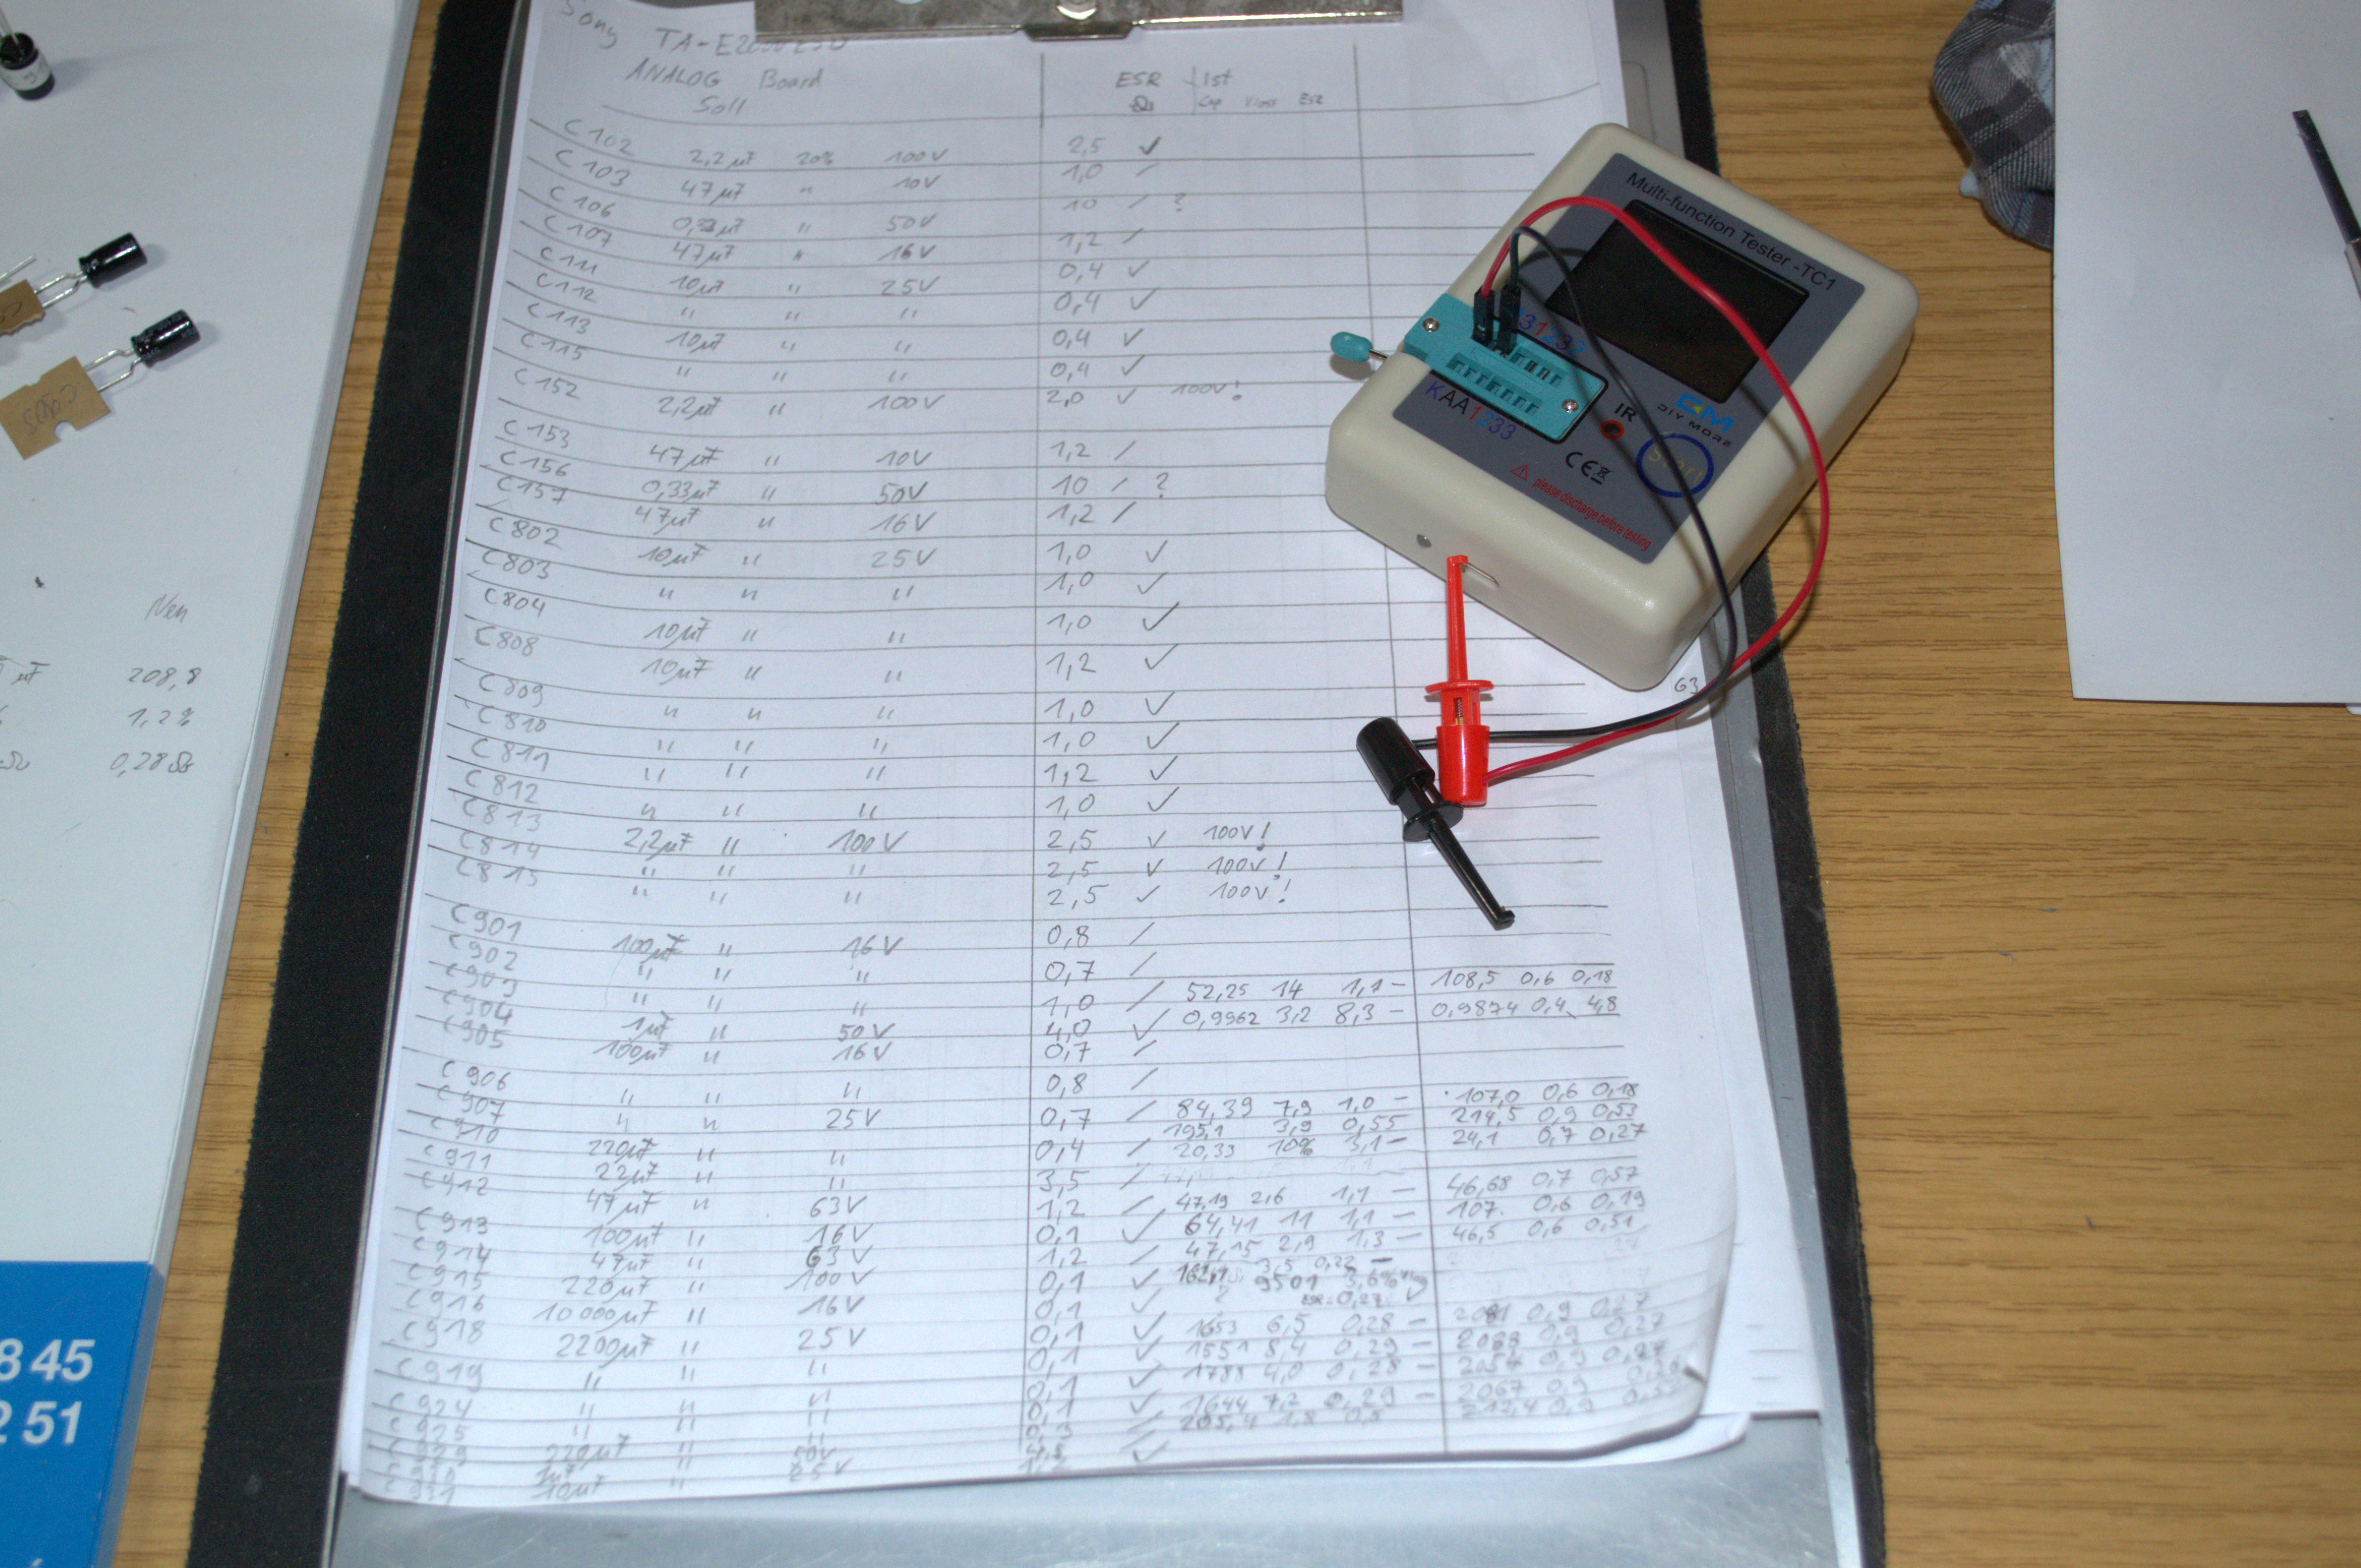 Sony TA-E2000ESD
ANALOG Board ESR Ist
Soll Ω Cap Vloss ESR
C102 2,2µF 20% 100V 2,5 ✓
C103 47µF " 10V 1,0 /
C106 0,33µF " 50V 10 / ?
C107 47µF " 16V 1,2 /
C111 10µF " 25V 0,4 ✓
C112 " " " 0,4 ✓
C113 10µF " " 0,4 ✓
C115 " " " 0,4 ✓
C152 2,2µF " 100V 2,0 ✓ 100V!
C153 47µF " 10V 1,2 /
C156 0,33µF " 50V 10 / ?
C157 47µF " 16V 1,2 /
C802 10µF " 25V 1,0 ✓
C803 " " " 1,0 ✓
C804 10µF " " 1,0 ✓
C808 10µF " " 1,2 ✓
C809 " " " 1,0 ✓
C810 " " " 1,0 ✓
C811 " " " 1,2 ✓
C812 " " " 1,0 ✓
C813 2,2µF " 100V 2,5 ✓ 100V!
C814 " " " 2,5 ✓ 100V!
C815 " " " 2,5 ✓ 100V!
C901 100µF " 16V 0,8 /
C902 " " " 0,7 /
C903 " " " 1,0 / 52,25 14 1,1 – 108,5 0,6 0,18
C904 1µF " 50V 4,0 ✓ 0,9962 3,2 8,3 – 0,9874 0,4 4,8
C905 100µF " 16V 0,7 /
C906 " " " 0,8 /
C907 " " 25V 0,7 / 84,39 7,9 1,0 – 107,0 0,6 0,18
C910 220µF " " 0,4 / 195,1 3,9 0,55 214,5 0,9 0,53
C911 22µF " " 3,5 / 20,33 10% 3,1 – 24,1 0,7 0,27
C912 47µF " 63V 1,2 / 47,19 2,6 1,1 – 46,68 0,7 0,57
C913 100µF " 16V 0,1 ✓ 64,41 11 1,1 – 107. 0,6 0,19
C914 47µF " 63V 1,2 / 47,15 2,9 1,3 – 46,5 0,6 0,51
C915 220µF " 100V 0,1 ✓ 3,5 0,22 –
C916 10000µF " 16V 0,1 ✓ ? 9501 3,6% ESR=0,27
C918 2200µF " 25V 0,1 ✓ 1653 6,5 0,28 – 2081 0,9 0,27
C919 " " " 0,1 ✓ 1551 8,4 0,29 – 0,9 0,27
C924 " " " 0,1 ✓ 1788 4,0 0,28 – 2057 0,9 0,27
C925 " " " 0,1 ✓ 1644 7,2 0,29 – 2067 0,9 0,26
C929 220µF " 50V 0,3 / 205,4 1,8 0,5 212,4 0,9
10µF " 25V ✓
63
Multi-function Tester -TC1
KAA1233
IR
DIY MORE
Start
CE
please discharge before testing
Neu
µF 208,8
1,2%
0,28Ω
8 45
2 51